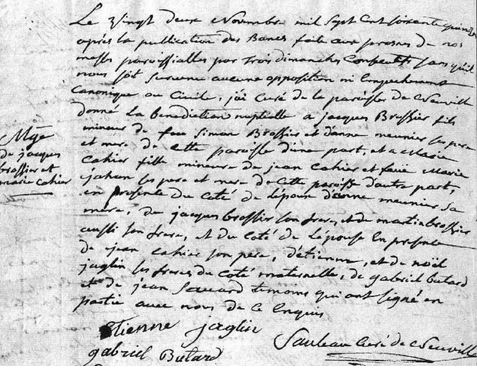 Le vingt deux novembre mil sept cent soixante quinze
après la publication des Bancs faite aux prosnes de nos
messes paroissiales par trois dimanches consecutifs sans qu'il
nous soit survenu aucune opposition ni Empechement
Canonique ou Civil, j'ai curé de la paroisse de
donné la benediction nuptialle a jacques Brossier fils
mineur de feu Simon Brossier et d'anne meunier ses pere
et mere de cette paroisse d'une part, et a Marie
Cahier fille mineure de jean Cahier et feue Marie
jahan ses pere et mere de cette paroisse d'autre part,
en presence du coté de l'époux d'anne meunier sa
mere, de jacques brossier son frere, et de martin brossier
aussi son frere, et du coté de l'épouse En presence
de jean Cahier son pere, d'étienne, et de noël
jaglin ses freres du coté maternelle, de gabriel butard
et de jean temoins qui ont signé en
partie avec nous de ce Enquis
Mge
de jacques
brossier et
marie Cahier
Etienne jaglin
gabriel Butard
Sauleau Curé de